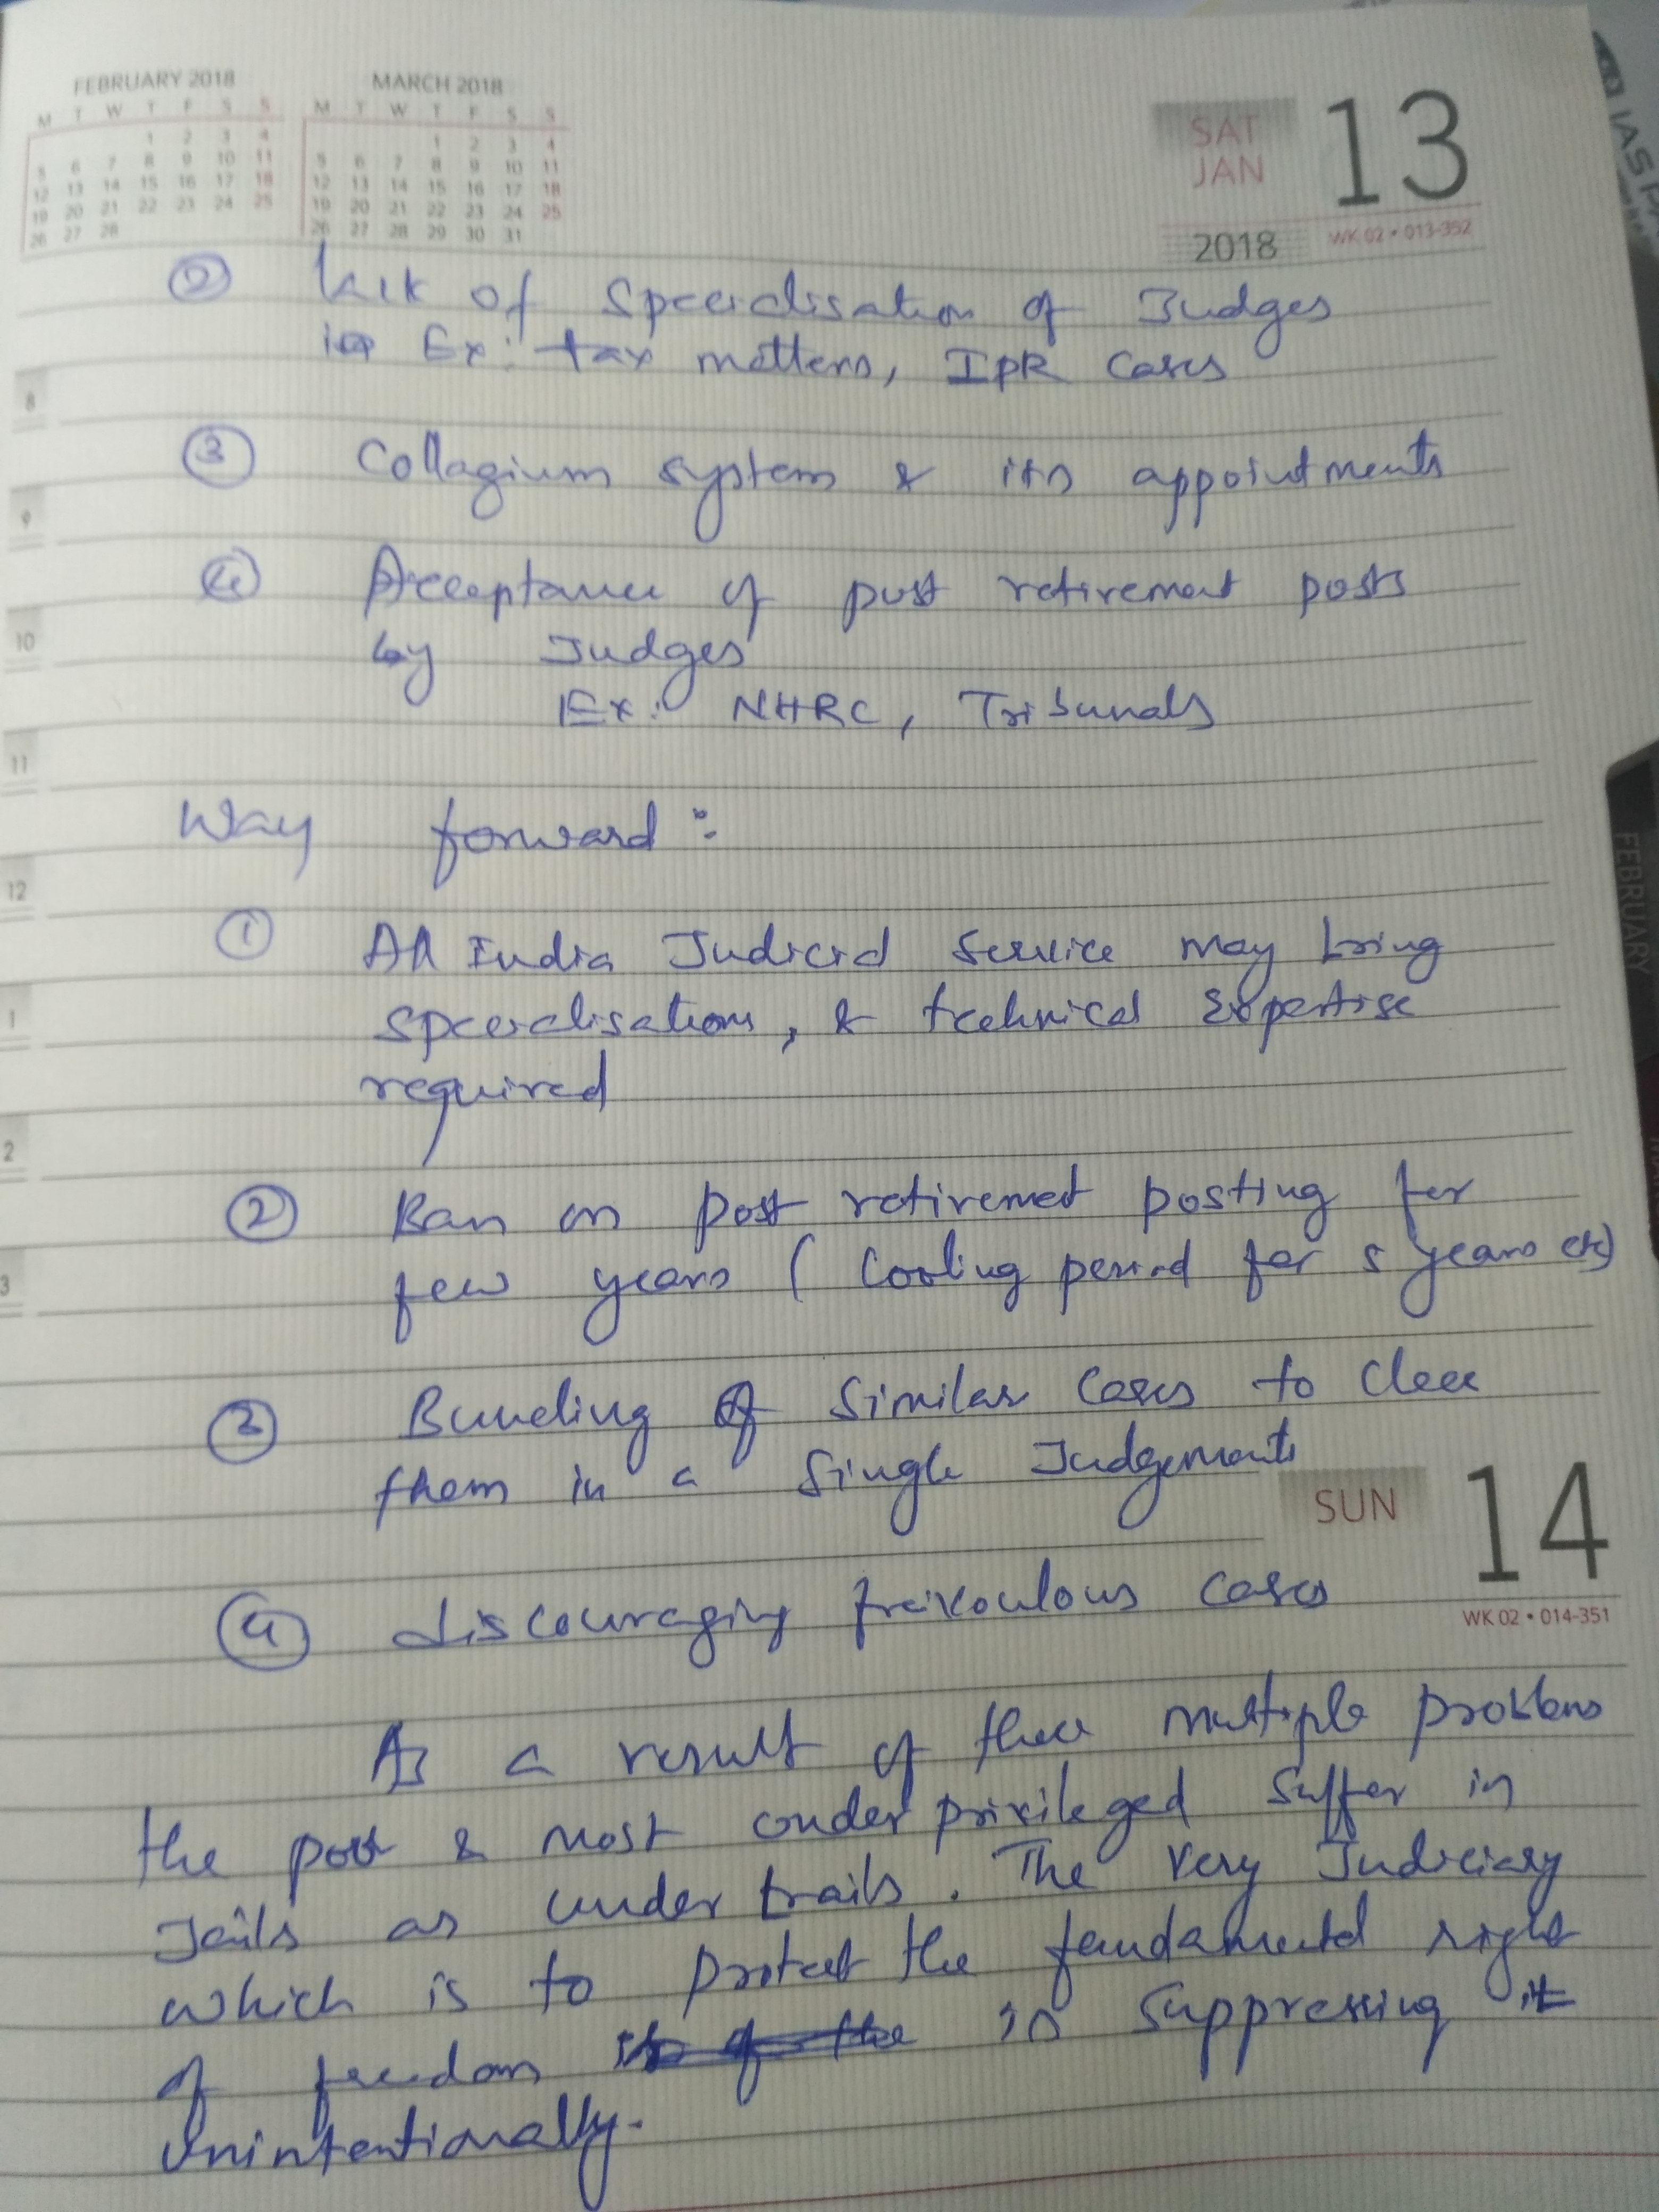 FEBRUARY 2018
M T W T F S S
1 2 3 4
5 6 7 8 9 10 11
12 13 14 15 16 17 18
19 20 21 22 23 24 25
26 27 28
MARCH 2018
M T W T F S S
1 2 3 4
5 6 7 8 9 10 11
12 13 14 15 16 17 18
19 20 21 22 23 24 25
26 27 28 29 30 31
SAT
JAN
13
2018
WK 02 • 013-352
② of Specialisation of Judges
Ex: tax matters, IPR Cases
③ Collagium system & its appointments
④ Acceptance of post retirement posts
by Judges
Ex: NHRC, Tribunals
Way forward :
① All India Judicial Service may bring
specialisation, & technical expertise
required
② Ban on post retirement posting for
few years ( Cooling period for 5 years etc)
③ of Similar Cases to clear
them in a Single Judgements
SUN
14
WK 02 • 014-351
④ discouraging cases
As a result of these multiple problems
the poor & most under privileged suffer in
Jails as under trails. The very Judiciary
which is to protect the fundamental right
of freedom is suppressing it
Unintentionally.
8
9
10
11
12
1
2
3
FEBRUARY
IAS